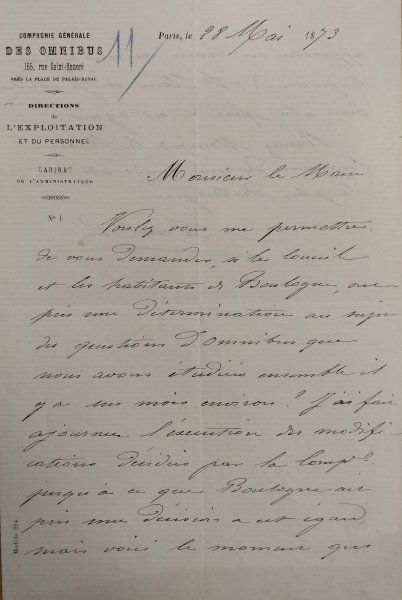 COMPAGNIE GÉNÉRALE
DES OMNIBUS
155, rue Saint-Honoré
PRÈS LA PLACE DU PALAIS-ROYAL
DIRECTIONS
de
L'EXPLOITATION
ET DU PERSONNEL
CABINET
DE L'ADMINISTRATEUR
N° 1
11
Paris, le 28 Mai 1873
Monsieur le Maire
Voulez vous me permettre
de vous demander, si le conseil
et les habitants de Boulogne, ont
pris une détermination au sujet
des questions d'omnibus que
nous avons étudiées ensemble il
y a un mois environ? J'ai fait
ajourner l'exécution des modifi-
cations décidées par la Compie
jusqu'à ce que Boulogne ait
pris une décision a cet égard,
mais voici le moment que
Modèle 224.